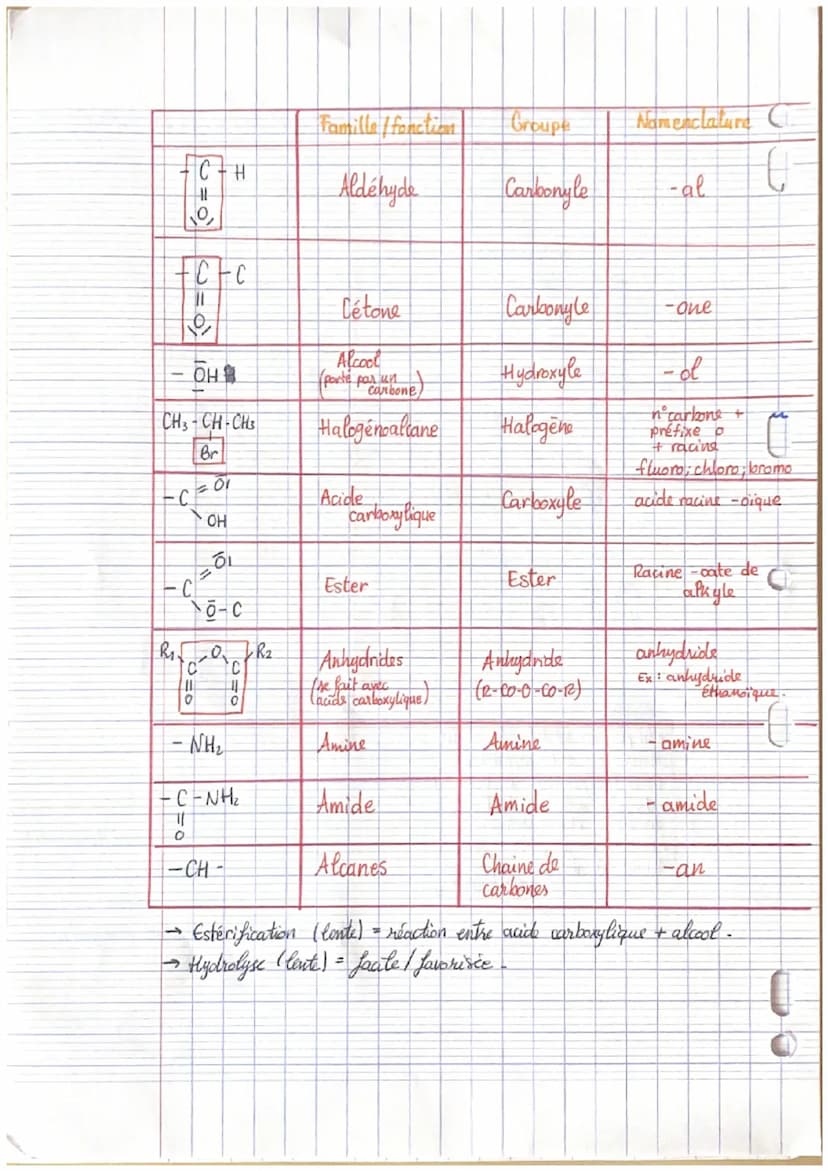 Famille/fonction Groupe Nomenclature
- C - H
||
O
Aldéhyde Carbonyle -al
- C - C
||
O
Cétone Carbonyle -one
- OH
Alcool
(porté par un
carbone)
Hydroxyle - ol
CH3 - CH - CH3
Br
Halogénoalcane Halogène
n° carbone +
préfixe o
+ racine
fluoro; chloro; bromo
- C = O
OH
Acide
carboxylique
Carboxyle acide racine -oïque
- C = O
O - C
Ester Ester
Racine -oate de
alkyle
R1 O R2
C C
|| ||
O O
Anhydrides
(se fait avec
acide carboxylique)
Anhydride
(R-CO-O-CO-R)
anhydride
Ex : anhydride
éthanoïque.
- NH2 Amine Amine - amine
- C - NH2
||
O
Amide Amide - amide
- CH - Alcanes
Chaine de
carbones
-an
→ Estérification (lente) = réaction entre acide carboxylique + alcool.
→ Hydrolyse (lente) = facile / favorisée.